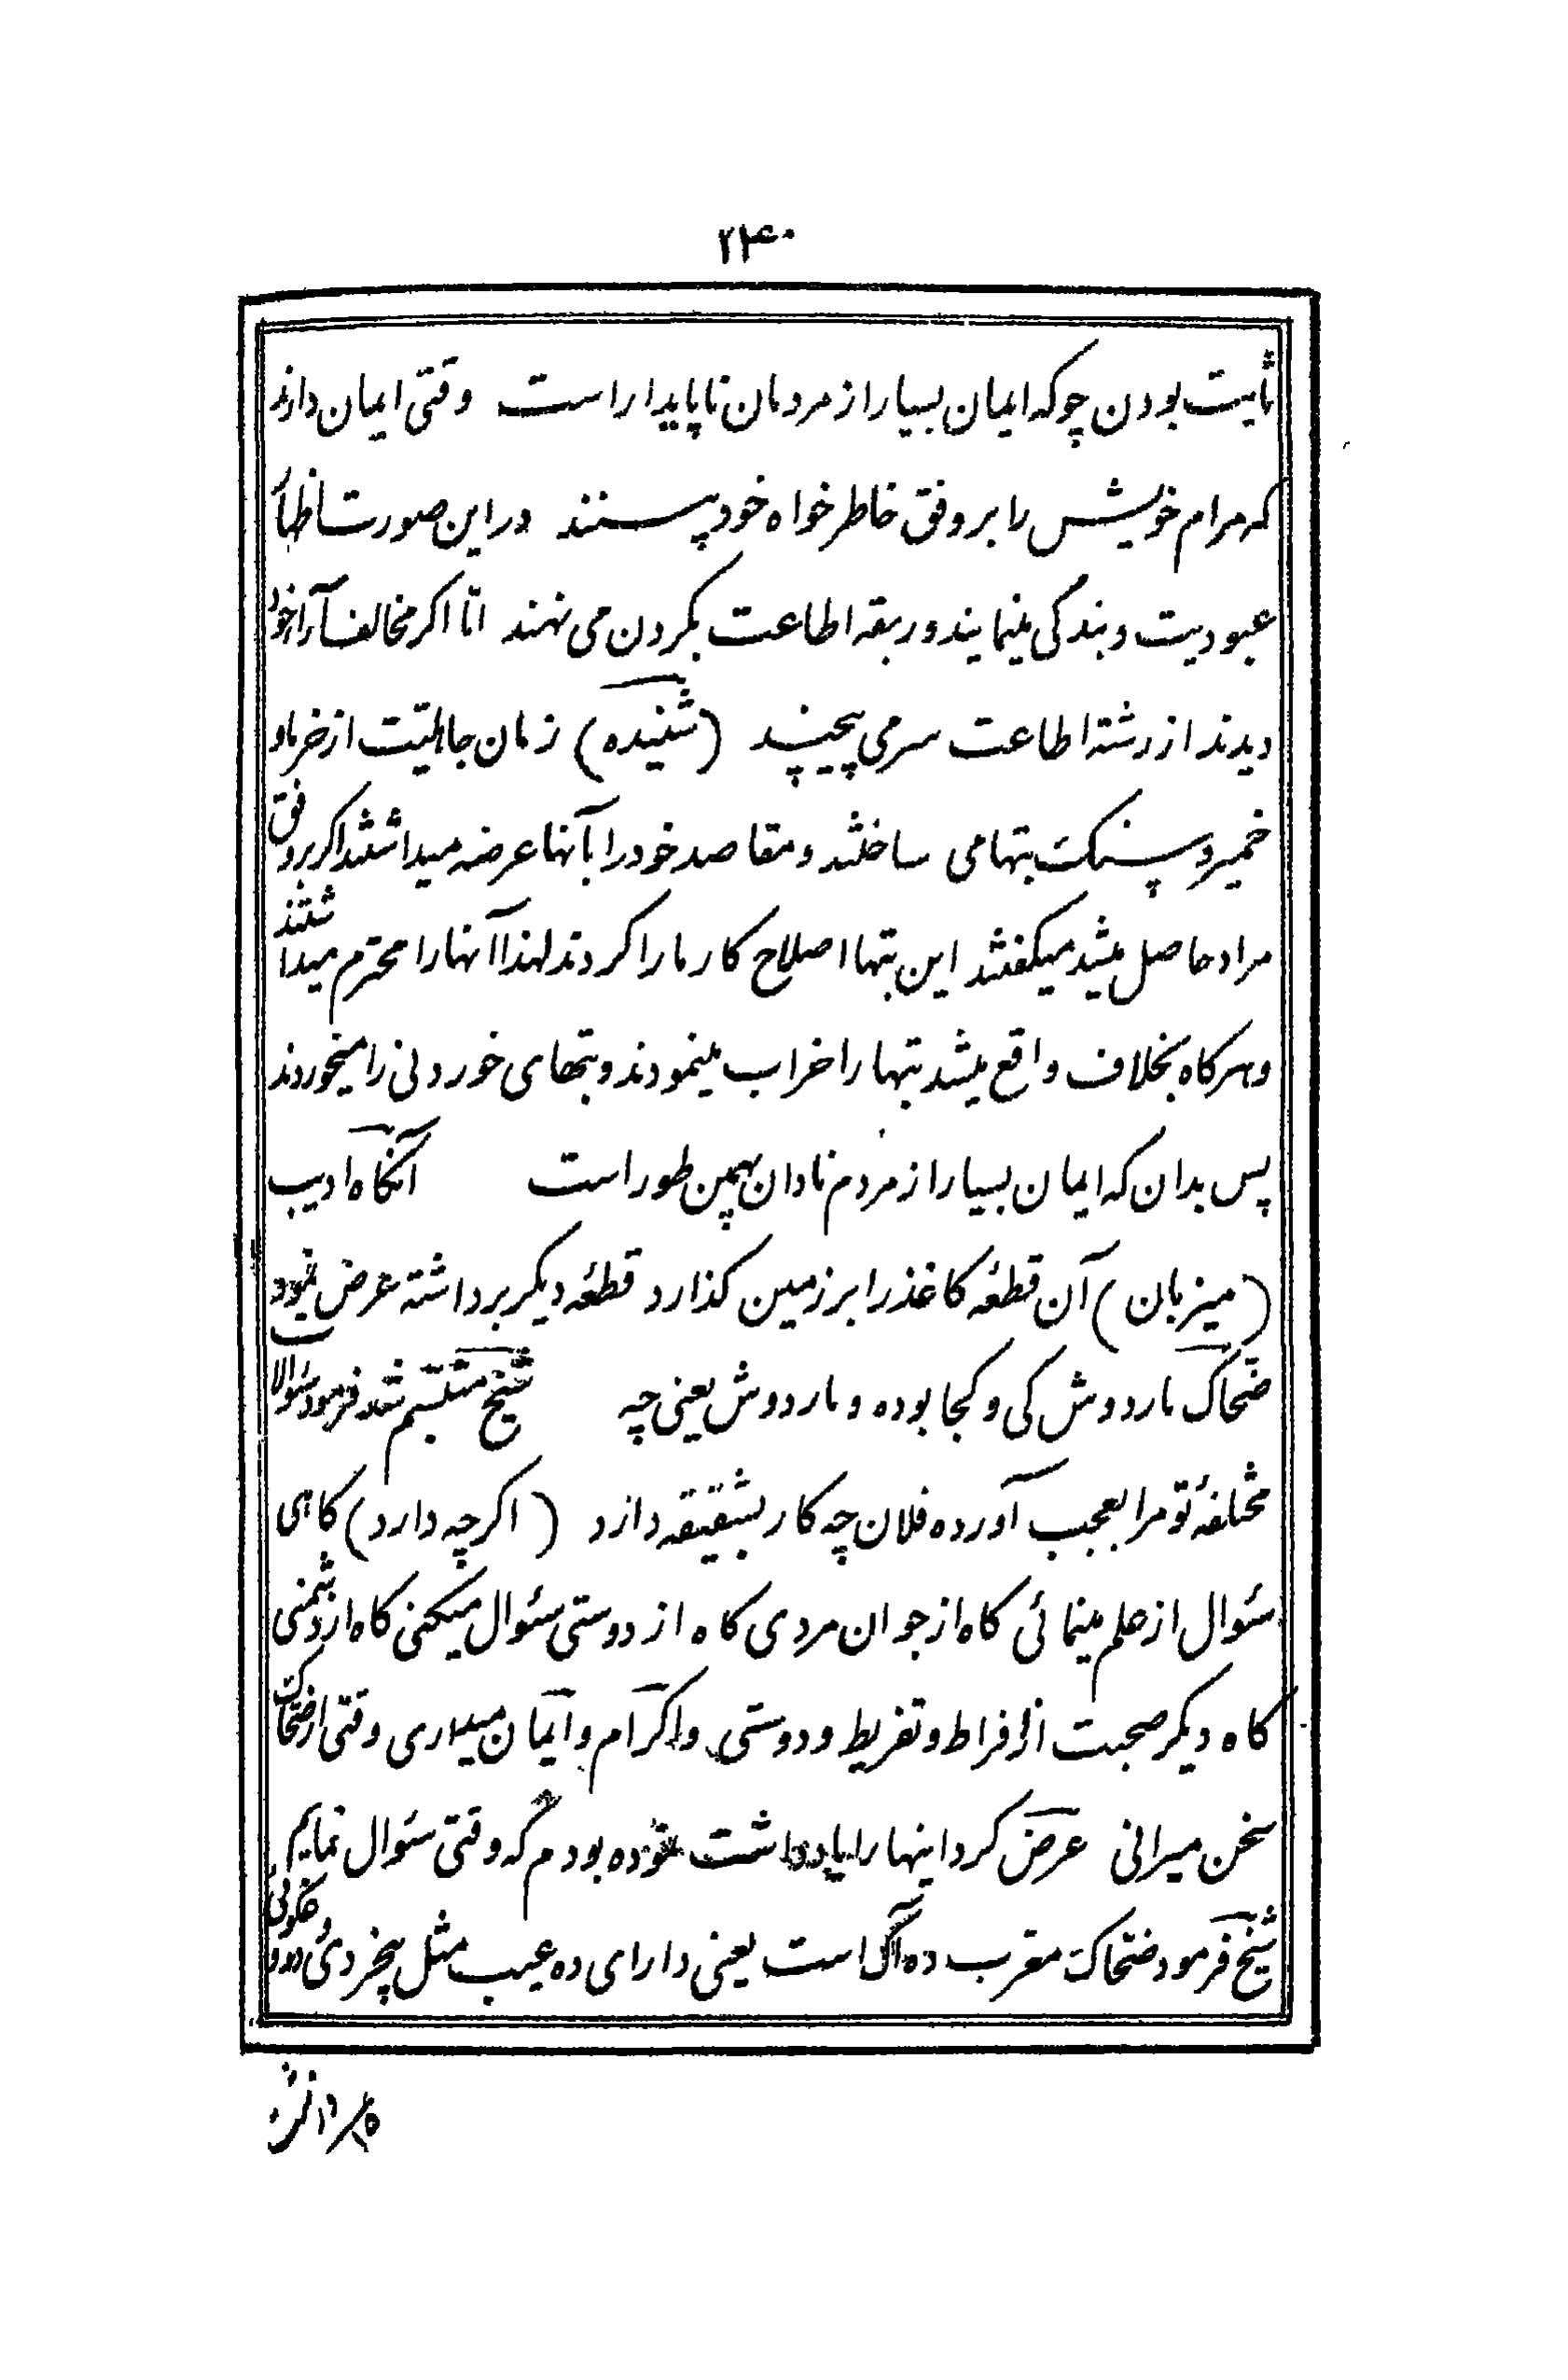 ۲۴۰
ثابت بودن چو که ایمان بسیار از مردمان ناپایدار است وقتی ایمان دارند
که مرام خویش را بر وفق خاطر خواه خود بینند در این صورت اظهار
عبودیت و بندگی مینمایند و ربقه اطاعت بکردن می نهند امّا اکر مخالف رأی خود
دیدند از رشته اطاعت سر می پیچند (شنیده) زمان جاهلیّت از خرما و
خمیر و سنک بتها می ساختند و مقاصد خود را بآنها عرضه میداشتند اکر بر وفق
مراد حاصل میشد میکفتند این بتها اصلاح کار ما را کردند لهذا آنها را محترم میداشتند
و هر کاه بخلاف واقع میشد بتها را خراب مینمودند و بتهای خوردنی را میخوردند
پس بدان که ایمان بسیار از مردم نادان بهمین طور است آنکاه ادیب
(میزبان) آن قطعهٔ کاغذ را بر زمین کذارد قطعهٔ دیکر برداشته عرض نمود
ضحّاک ماردوش کی و کجا بوده و ماردوش یعنی چه شیخ متبسّم شد فرمود سئوالات
مختلفهٔ تو مرا بعجب آورده فلان چه کار بشقیقه دارد (اکر چه دارد) کاهی
سئوال از علم مینمائی کاه از جوان مردی کاه از دوستی سئوال میکنی کاه از دشمنی
کاه دیکر صحبت از افراط و تفریط و دوستی و اکرام و ایمان میداری وقتی از ضحّاک
سخن میرانی عرض کرد اینها را یادداشت نموده بودم که وقتی سئوال نمایم
شیخ فرمود ضحّاک معرب ده آک است یعنی دارای ده عیب مثل بیخردی و